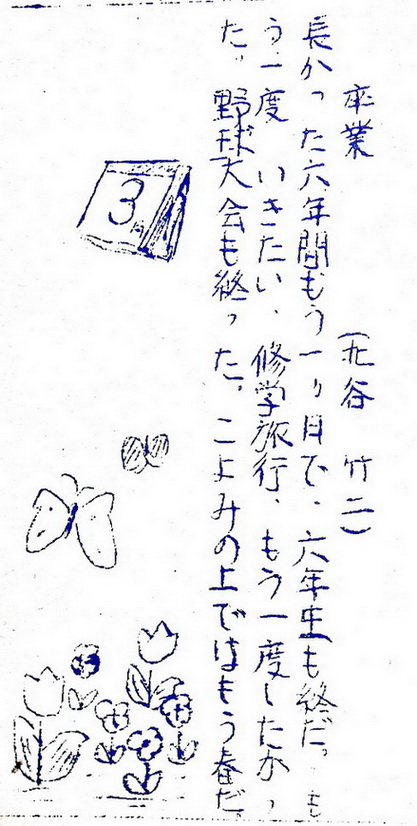 卒業　(丸谷　竹二)
長かった六年間もう一ヶ月で、六年生も終だ。も
う一度　いきたい、修学旅行、もう一度したかっ
た、野球大会も終った。こよみの上ではもう春だ。
3